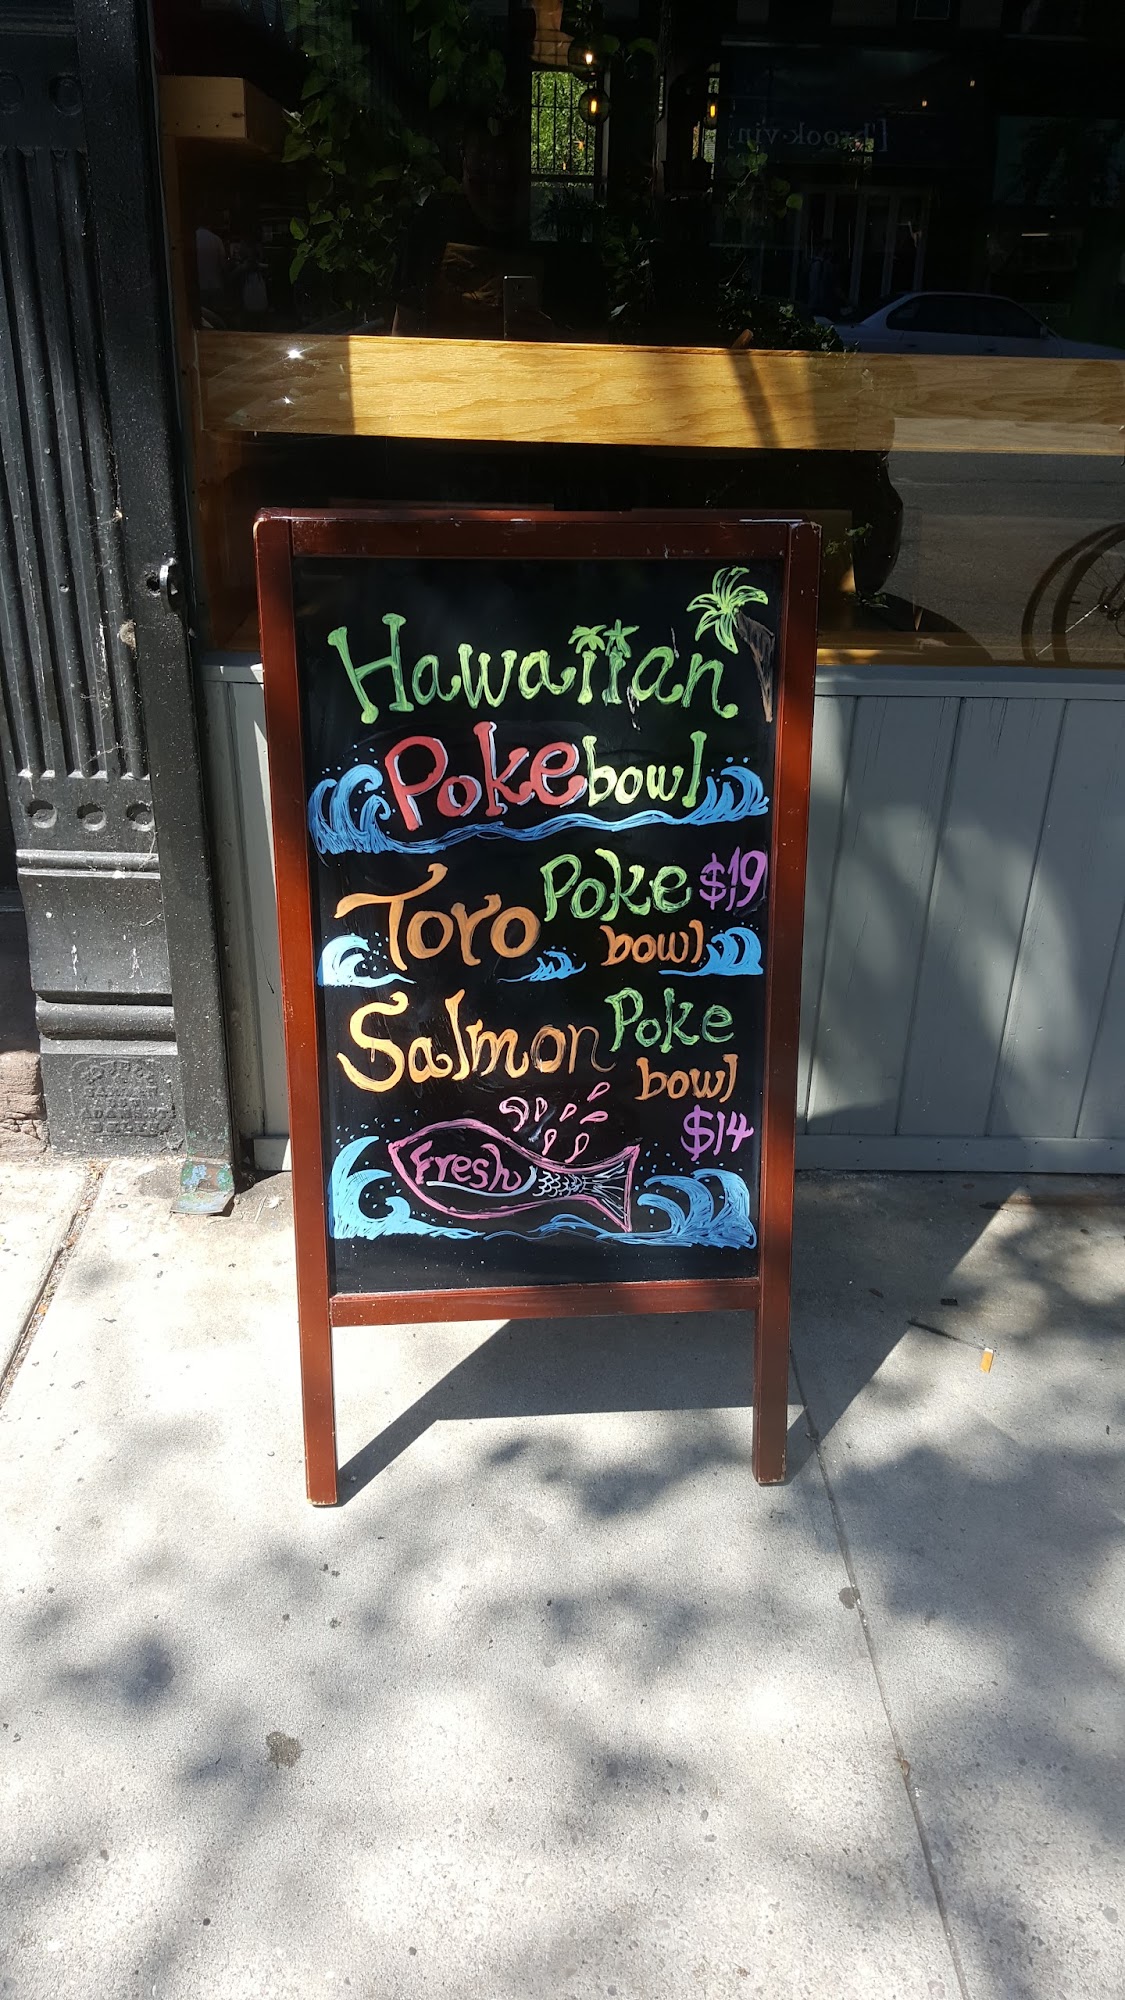 [brook·vin]
Hawaiian
Poke bowl
Toro Poke bowl $19
Salmon Poke bowl
$14
Fresh